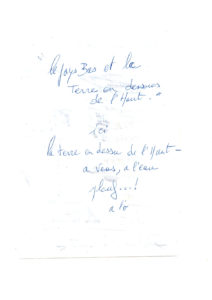 le pays Bas et la
Terre en dessous
de l'Haut."
la terre en dessu de l'Haut -
a vous, a l'eau
plouf...!